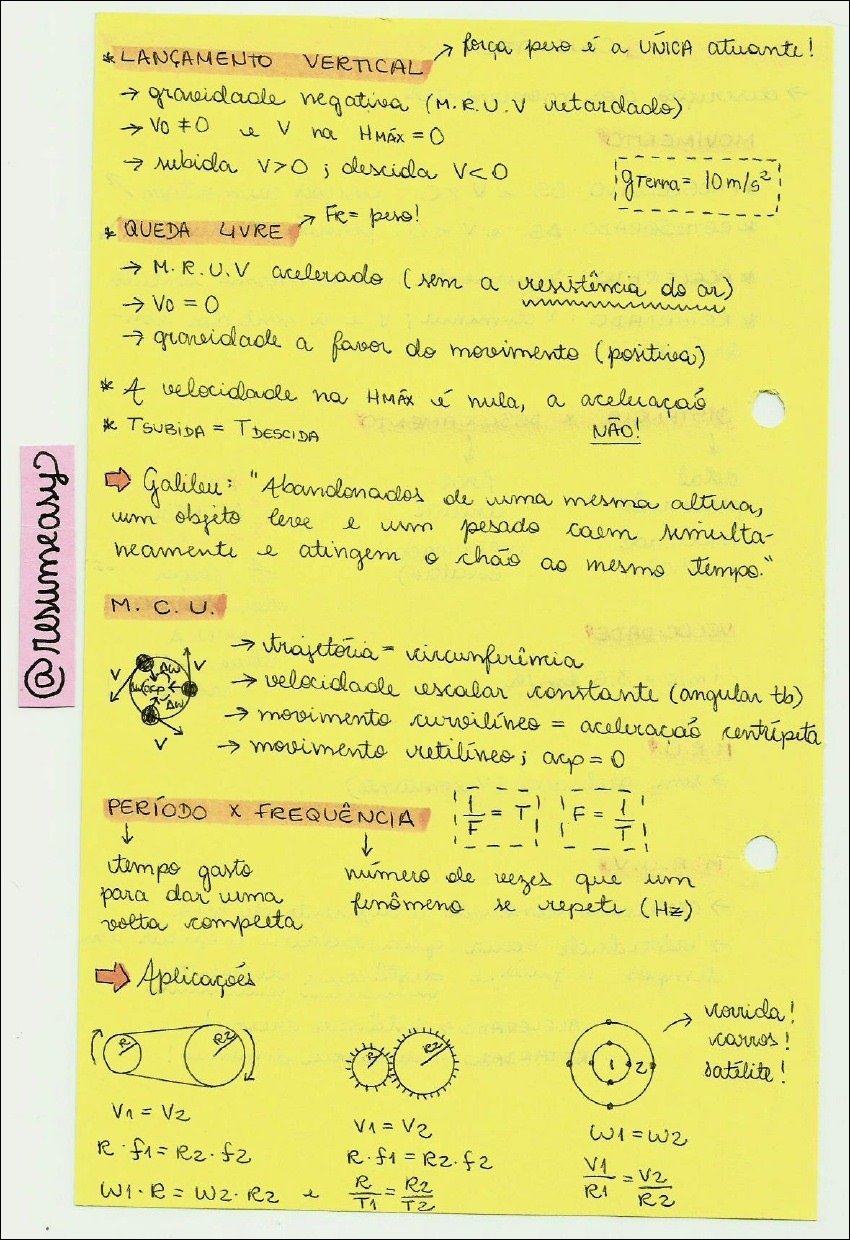 * LANÇAMENTO VERTICAL → força peso é a ÚNICA atuante!
→ gravidade negativa (M.R.U.V retardado)
→ V0 ≠ 0 e V na HMÁX = 0
→ subida V>0 ; descida V<0
gTerra = 10 m/s²
* QUEDA LIVRE → FR = peso!
→ M.R.U.V acelerado (sem a resistência do ar)
→ V0 = 0
→ gravidade a favor do movimento (positiva)
* A velocidade na HMÁX é nula, a aceleração
NÃO!
* TSUBIDA = TDESCIDA
⇨ Galileu: "Abandonados de uma mesma altura,
um objeto leve e um pesado caem simulta-
neamente e atingem o chão ao mesmo tempo."
@resumeasy
M. C. U.
V V V
Δω Δω Δω acp
→ trajetória = circunferência
→ velocidade escalar constante (angular tb)
→ movimento curvilíneo = aceleração centrípeta
→ movimento retilíneo ; acp = 0
PERÍODO X FREQUÊNCIA
1/F = T
F = 1/T
tempo gasto
para dar uma
volta completa
número de vezes que um
fenômeno se repete (Hz)
⇨ Aplicações
R R2
V1 = V2
R · f1 = R2 · f2
W1 · R = W2 · R2 e
R R2
V1 = V2
R · f1 = R2 · f2
R/T1 = R2/T2
1 2
→ corrida!
carros!
satélite!
W1 = W2
V1/R1 = V2/R2